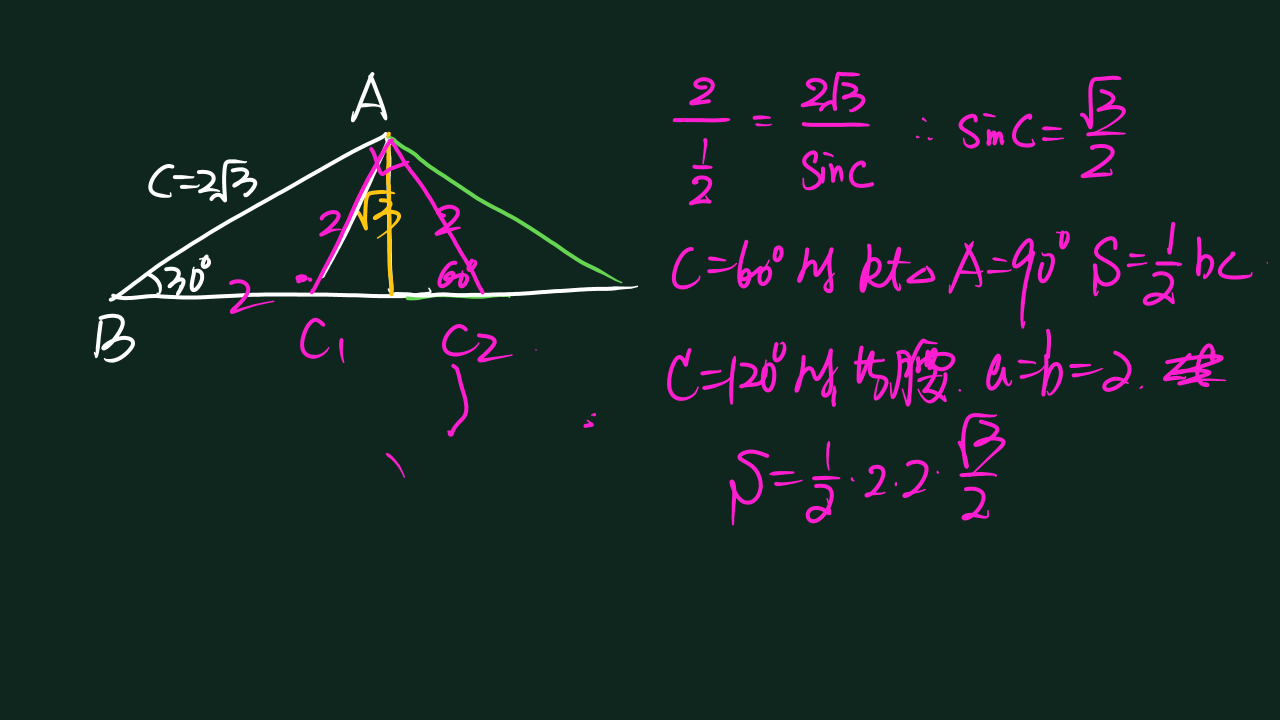 A
C=2√3
30°
2
√3
2
2
60°
B
C1
C2
2/(1/2) = 2√3/sinC ∴ sinC=√3/2
C=60°时 Rt△ A=90° S=1/2 bc
C=120°时 等腰. a=b=2.
S=1/2·2·2·√3/2